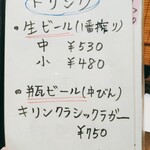 ドリンク
●生ビール(1番搾り)
中 ¥530
小 ¥480
●瓶ビール(中びん)
キリンクラシックラガー
¥750